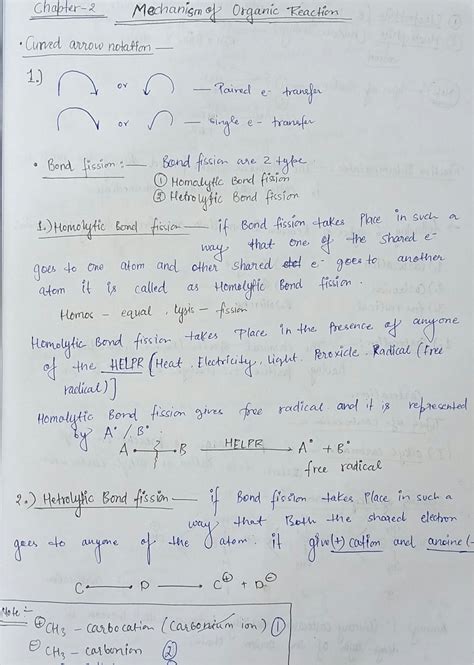 Chapter-2 Mechanism of Organic Reaction
• Curved arrow notation —
1.) or — Paired e- transfer
or — single e- transfer
• Bond fission :— Bond fission are 2 type
① Homalytic Bond fission
② Hetrolytic Bond fission
1.) Homolytic Bond fission — if Bond fission takes Place in such a
way that one of the shared e-
goes to one atom and other shared e- goes to another
atom it is called as Homolytic Bond fission.
Homos - equal, lysis - fission
Homolytic Bond fission takes Place in the Presence of anyone
of the HELPR [Heat, Electricity, Light, Peroxide, Radical (free
radical)]
Homolytic Bond fission gives free radical and it is represented
by A• / B•
A B HELPR A• + B•
free radical
2.) Hetrolytic Bond fission — if Bond fission takes Place in such a
way that Both the shared electron
goes to anyone of the atom. it give (+) cation and anoine (-
C D C⊕ + D⊖
Note :-
⊕CH3 - carbocation (Carbonium ion) ①
⊖CH3 - carbonion ②